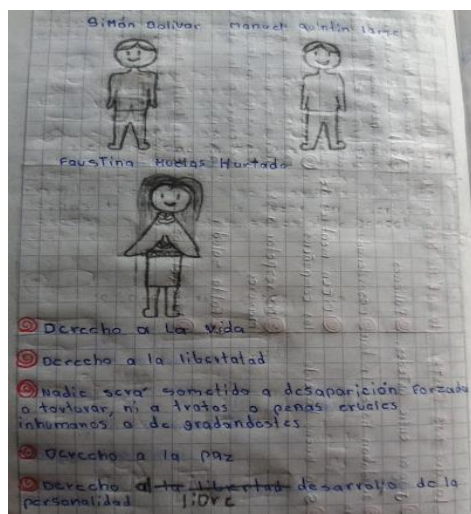 Simón Bolívar manuel quintin lame
Faustina Mottas Hurtado
Derecho a La vida
Derecho a la libertatad
Nadie será sometido a desaparición Forzada
o torturar, ni a tratos o penas crueles
inhumanos o de gradandostes
Derecho a la paz
Derecho al la libertad desarrollo de la
personalidad libre